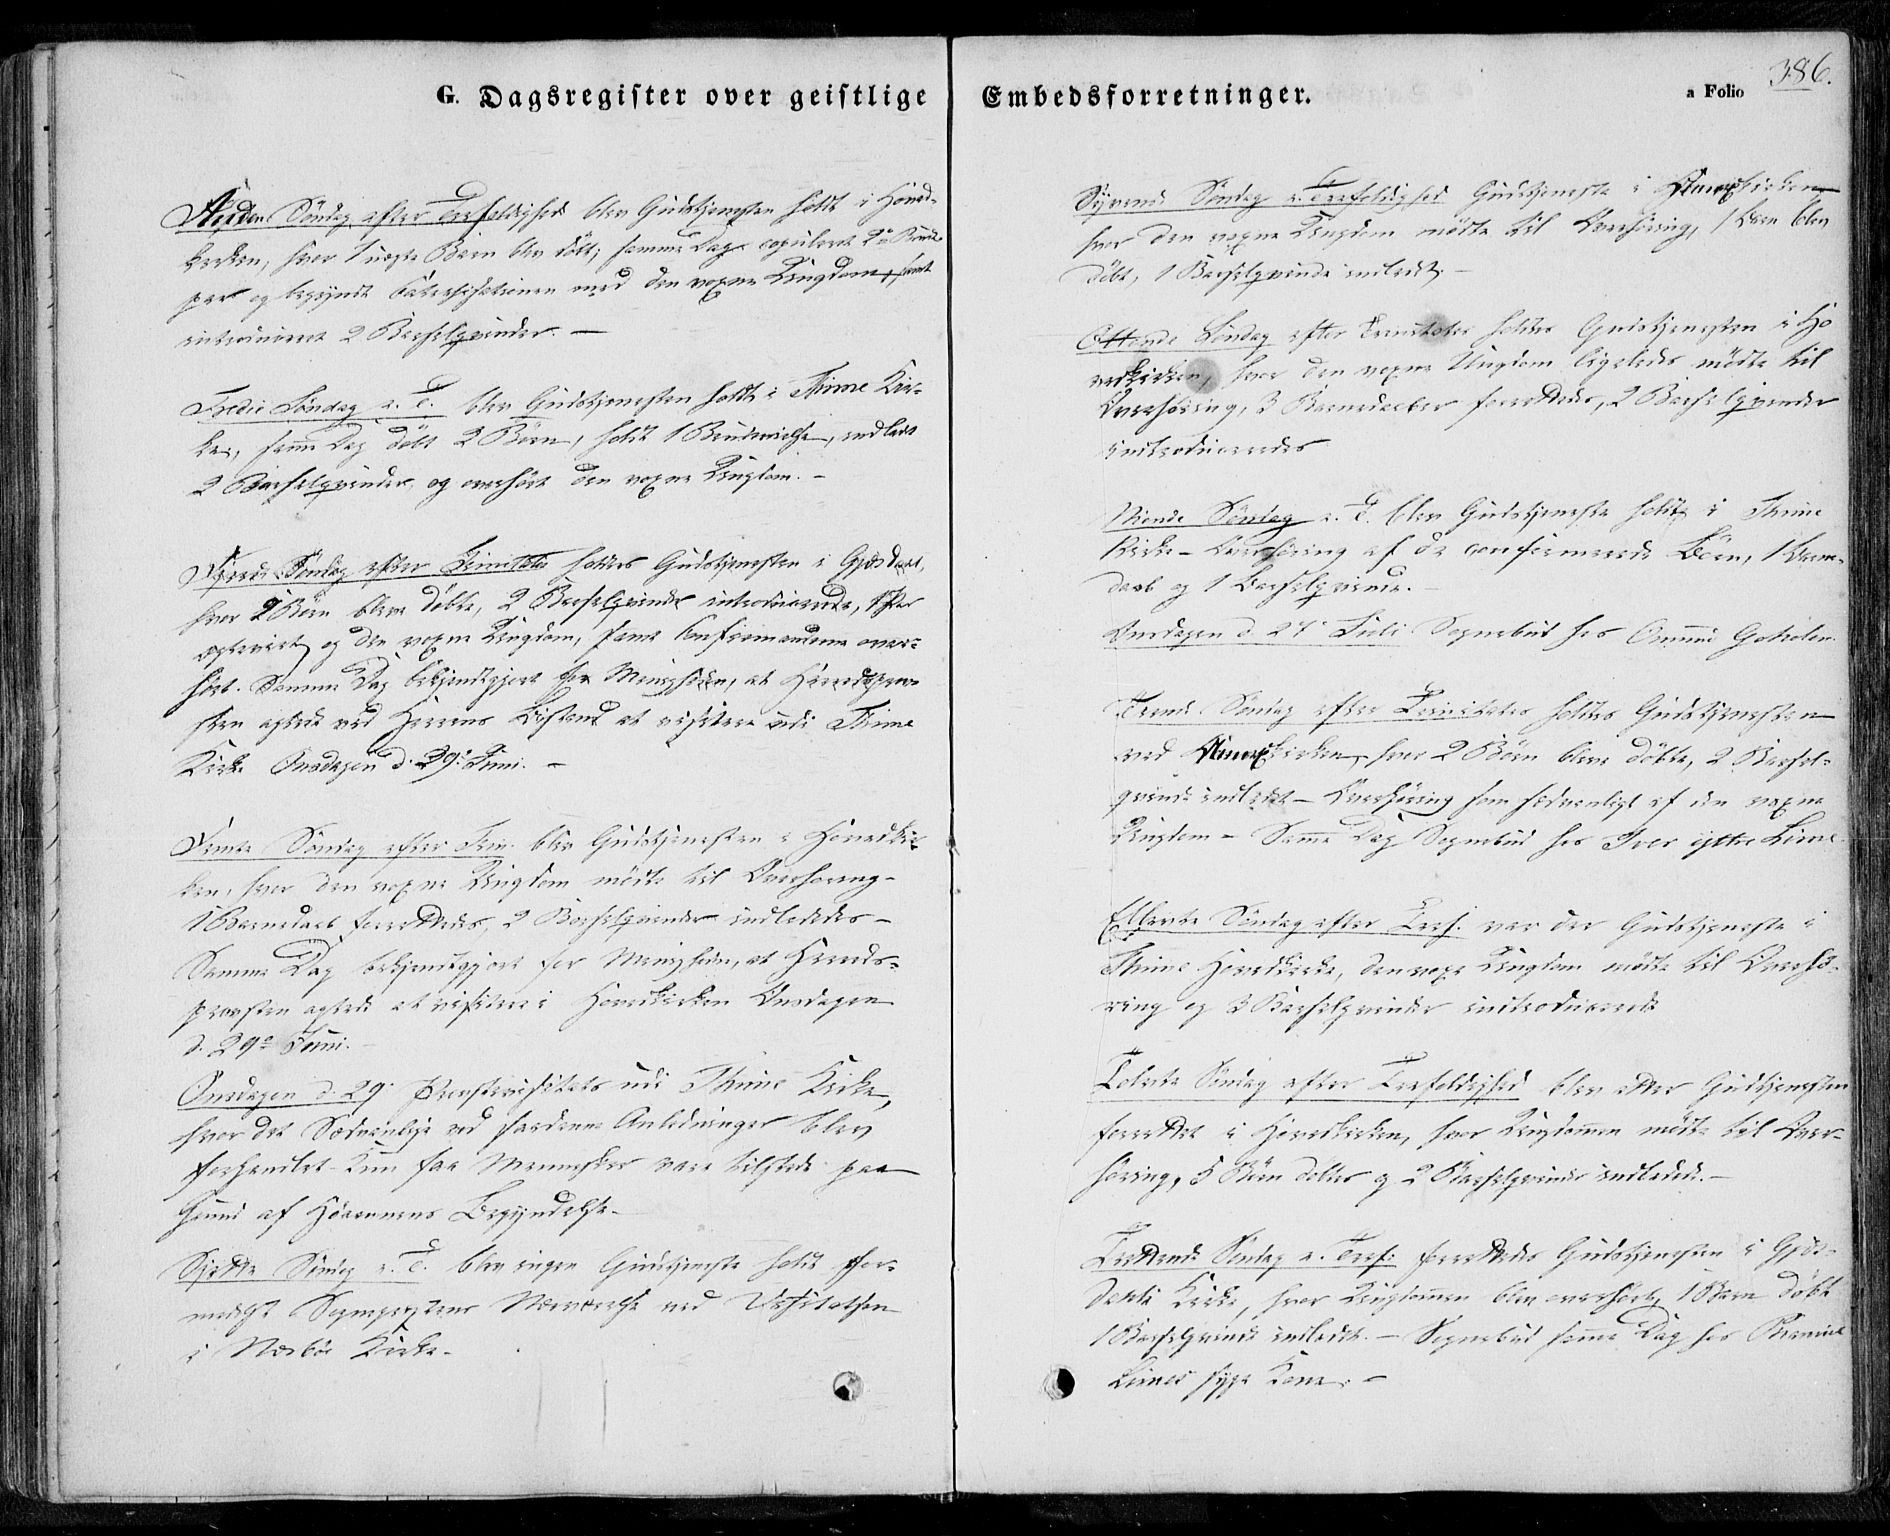 G. Dagsregister over geistlige
Anden Søndag efter Trefoldighed blev Gudstjenesten holdt i Hoved-
kirken, hvor 1 uægte Barn blev døbt, samme Dag copuleret 2 Brude-
par og begyndt Catechisationen med den voxne Ungdom, samt
introduceret 2 Barselqvinder. —
Tredie Søndag e. T. blev Gudstjenesten holdt i Thime Kir-
ke, samme Dag døbt 2 Børn, holdt 1 Brudevielse, indledt
2 Barselqvinder, og overhørt den voxne Ungdom. —
Fjerde Søndag efter Trinitatis holdtes Gudstjenesten i Gjesdal,
hvor 2 Børn bleve døbte, 2 Barselqvinder introducerede, 1 Par
og den voxne Ungdom, samt Confirmanderne over-
hørt. Samme Dag bekjendtgjort for Menigheden, at Herredsprov-
sten agtede ved Herrens Bistand at visitere udi Thime
Kirke Onsdagen d. 29. Juni. —
Femte Søndag efter Trin. blev Gudstjenesten i Hovedkir-
ken, hvor den voxne Ungdom mødte til Overhøring —
1 Barnedaab forrettedes, 2 Barselqvinder indlededes —
Samme Dag bekjendtgjort for Menigheden, at Herreds-
provsten agtede at visitere i Hovedkirken Onsdagen
d. 29de Juni.
Onsdagen d. 29. Provstevisitats udi Thime Kirke,
hvor det Sædvanlige ved saadanne Anledninger blev
forhandlet – Kun faa Mennesker vare tilstede paa
Grund af Høeonnens Begyndelse —
Sjette Søndag e. T. blev ingen Gudstjeneste holdt for-
medelst Sognepræstens Nærværelse ved Visitatsen
i Nærbø Kirke —
Embedsforretninger.
a Folio
386.
Syvende Søndag e. Trefoldighed Gudstjeneste i Annexkirken
hvor den voxne Ungdom mødte til Overhøring, 1 Barn blev
døbt, 1 Barselqvinde indledt. —
Ottende Søndag efter Trinitatis holdtes Gudstjenesten i Ho-
vedkirken, hvor den voxne Ungdom ligeledes mødte til
Overhøring, 3 Barnedaaber forrettedes, 2 Barselqvinder
introduceredes
Niende Søndag e. T. blev Gudstjeneste holdt i Thime
Kirke – Overhøring af de confirmerede Børn, 1 Barne-
daab og 1 Barselqvinde. —
Onsdagen d. 27. Juli Sognebud hos
Tiende Søndag efter Trinitatis holdtes Gudstjenesten
ved Annexkirken, hvor 2 Børn bleve døbte, 2 Barsel-
qvinder indledet – Overhøring som sædvanligt af den voxne
Ungdom – Samme Dag Sognebud hos Iver ytre Lime
Ellevte Søndag efter Tref. var der Gudstjeneste i
Thime Hovedkirke, den voxne Ungdom mødte til Overhø-
ring og 3 Barselqvinder introducerede
Tolvte Søndag efter Trefoldighed blev atter Gudstjenesten
forrettet i Hovedkirken, hvor Ungdommen mødte til Over-
høring, 5 Børn døbtes og 2 Barselqvinder indledede. —
Trettende Søndag e. Tref: forrettedes Gudstjenesten i Gjes-
dahls Kirke, hvor Ungdommen blev overhørt, 1 Barn døbt
1 Barselqvinde indledet. – Sognebud samme Dag hos
Limes syge Kone. —